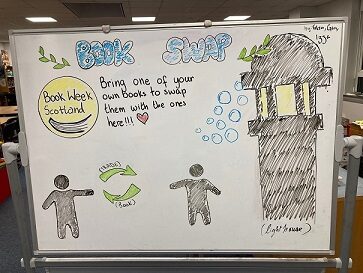 BOOK SWAP
Book Week
Scotland
Bring one of your
own books to swap
them with the ones
here!!!
(Book)
(Lighthouse)